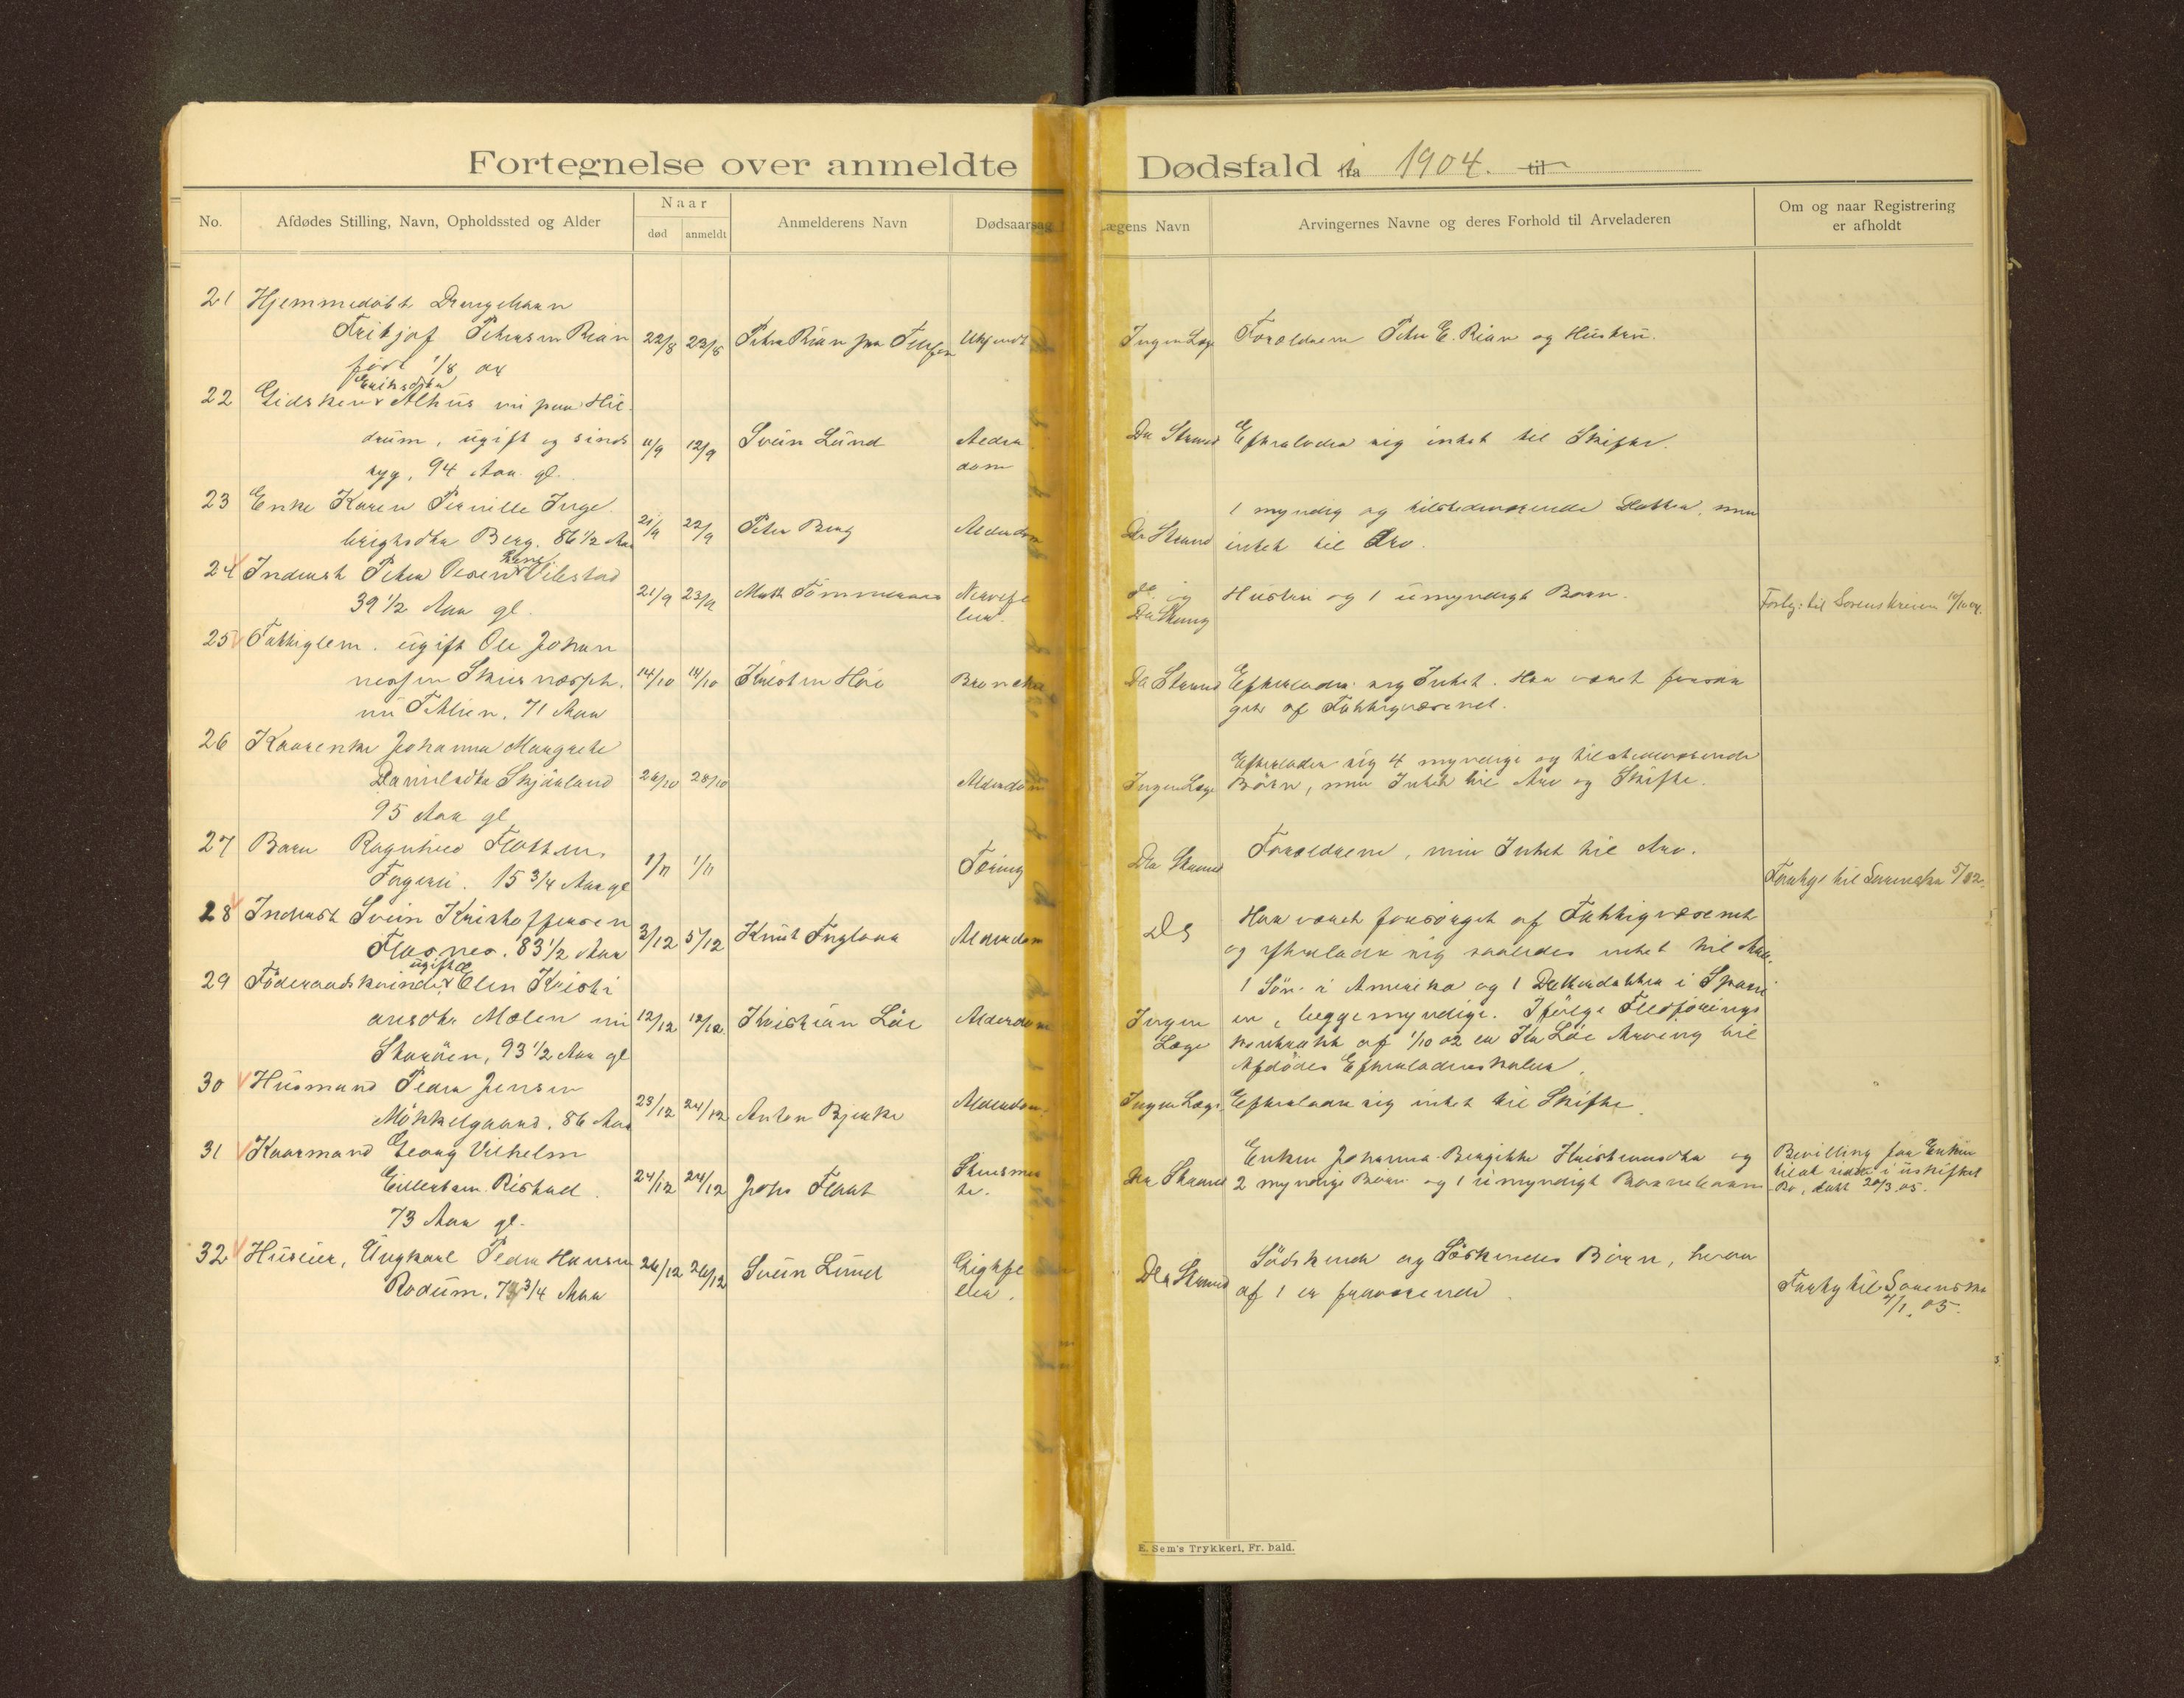 Fortegnelse over anmeldte Dødsfald i 1904.
No.
Afdødes Stilling, Navn, Opholdssted og Alder
Naar
død
anmeldt
Anmelderens Navn
Dødsaarsag
Lægens Navn
Arvingernes Navne og deres Forhold til Arveladeren
Om og naar Registrering
er afholdt
21 Hjemmedøbt Drengebarn
Fritjof Petersen Rian 22/8 23/8 Peter Rian Ukjendt Ingen Læge Forældrene Peter E. Rian og Hustru.
født 1/8 04
Eriksdtr
22 Gidsken Alhus nu paa Hil-
drum, ugift og sinds 11/9 12/9 Svein Lund Alder- Dr Strand Efterlader sig intet til Skifte.
syg, 94 Aar gl. dom
23 Enke Karen Pernille Inge- 1 myndig og tilstedeværende Datter, men
brigtsdtr Berg. 86 1/2 Aar 21/9 22/9 Peter Berg Alderdom Dr Strand intet til Arv.
24 Inderst Peter Olsen Vibstad
39 1/2 Aar gl. 21/9 23/9 Nervefe- do og Hustru og 1 umyndigt Barn. Forlg. til Sorenskriveren 10/10 04.
ber. Dr
25 Fattiglem. ugift Ole Johan-
nessen 14/10 14/10 Kristen Høi Dr Strand Efterlader sig Intet. Har været forsør-
nu 71 Aar get af Fattigvæsenet.
26 Kaarenke Johanna Margrete Efterlader sig 4 myndige og tilstedeværende
Danielsdtr Skjærland 26/10 28/10 Alderdom Ingen Læge Børn, men Intet til Arv og Skifte.
95 Aar gl
27 Barn Ragnhild Flotten, Forældrene, men Intet til Arv.
15 3/4 Aar gl 1/11 1/11 Tæring Dr Strand
28 Inderst Svein Kristoffersen Har været forsørget af Fattigvæsenet
Flasnes. 83 1/2 Aar 3/12 5/12 Knut Alderdom Do og efterlader sig saaledes intet til Arv.
ugift
29 Føderaadskvinde Elen Kristi- 1 Søn i Amerika og 1 Datterdatter i
ansdtr Moen nu 12/12 12/12 Kristian Løe Alderdom Ingen er, begge myndige. Ifølge Fledførings
93 1/2 Aar gl Læge kontrakt af 1/10 02 er Kr Løe Arving til
Afdødes Efterladenskaber.
30 Husmand Peder Jensen
Møkkelgaard. 86 Aar 23/12 24/12 Anton Bjerke Alderdom. Ingen Læge Efterlader sig intet til Skifte.
31 Kaarmand Georg Vilhelm Enken Johanna Bergitte Kristensdtr og Bevilling for Enken
Eilertsen Ristad. 24/12 24/12 John Flaat Dr Strand 2 myndige Børn og 1 umyndigt Barnebarn til at sidde i uskiftet
73 Aar gl. Bo, datt 20/3 05.
32 Huseier, Ungkarl Peder Hansen Sødskende og Søskendes Børn, hvor-
Rodum. 3/4 Aar 26/12 26/12 Svein Lund Dr Strand af 1 er fraværende. til Sorenskr
7/1. 05.
E. Sem's Trykkeri, Fr. hald.